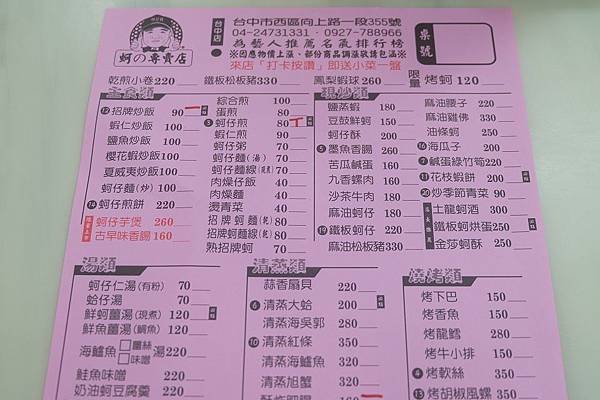 蚵の専賣店
台中店
台中市西區向上路一段355號
04-24731331、0927-788966
為藝人推薦名氣排行榜
※因應物價上漲、部份商品調漲敬請包涵※
來店「打卡按讚」即送小菜一盤
桌號
乾煎小卷220
鐵板松板豬330
鳳梨蝦球260
限量
烤蚵120
主食類
招牌炒飯 90
蝦仁炒飯 100
鹽魚炒飯 100
櫻花蝦炒飯 100
夏威夷炒飯 100
蚵仔麵(炒) 100
蚵仔煎餅 220
蚵仔芋煲 260
古早味香腸 160
綜合煎 100
蛋煎 80
蚵仔煎 80
蝦仁煎 90
蚵仔粥 70
蚵仔麵(湯) 70
蚵仔麵線 70
肉燥仔飯 40
肉燥麵 40
燙青菜 40
招牌蚵麵 80
招牌蚵麵線 80
熟招牌蚵 70
現炒類
鹽蒸蝦 180
豆鼓鮮蚵 150
蚵仔酥 200
墨魚香腸 260
苦瓜鹹蛋 160
九香螺肉 160
沙茶牛肉 180
麻油蚵仔 180
鐵板蚵仔 220
麻油松板豬330
麻油腰子 220
麻油雞佛 330
油條蚵 200
海瓜子 200
鹹蛋綠竹筍220
花枝蝦餅 200
炒季節青菜 90
土龍蚵酒 300
鐵板蚵烘蛋250
金莎蚵酥 250
湯類
蚵仔仁湯(有粉) 70
蛤仔湯 70
鮮蚵薑湯(現煮) 70
鮮魚薑湯(鯛魚) 70
海鱸魚 薑絲 味噌 湯220
鮭魚味噌 220
奶油蚵豆腐羹
清蒸類
蒜香扇貝 220
清蒸大蛤 200
清蒸海吳郭 280
清蒸紅條 350
清蒸海鱸魚 320
清蒸旭蟹 320
160
燒烤類
烤下巴 150
烤香魚 150
烤龍鱈 280
烤牛小排 150
烤軟絲 350
烤胡椒風螺 350